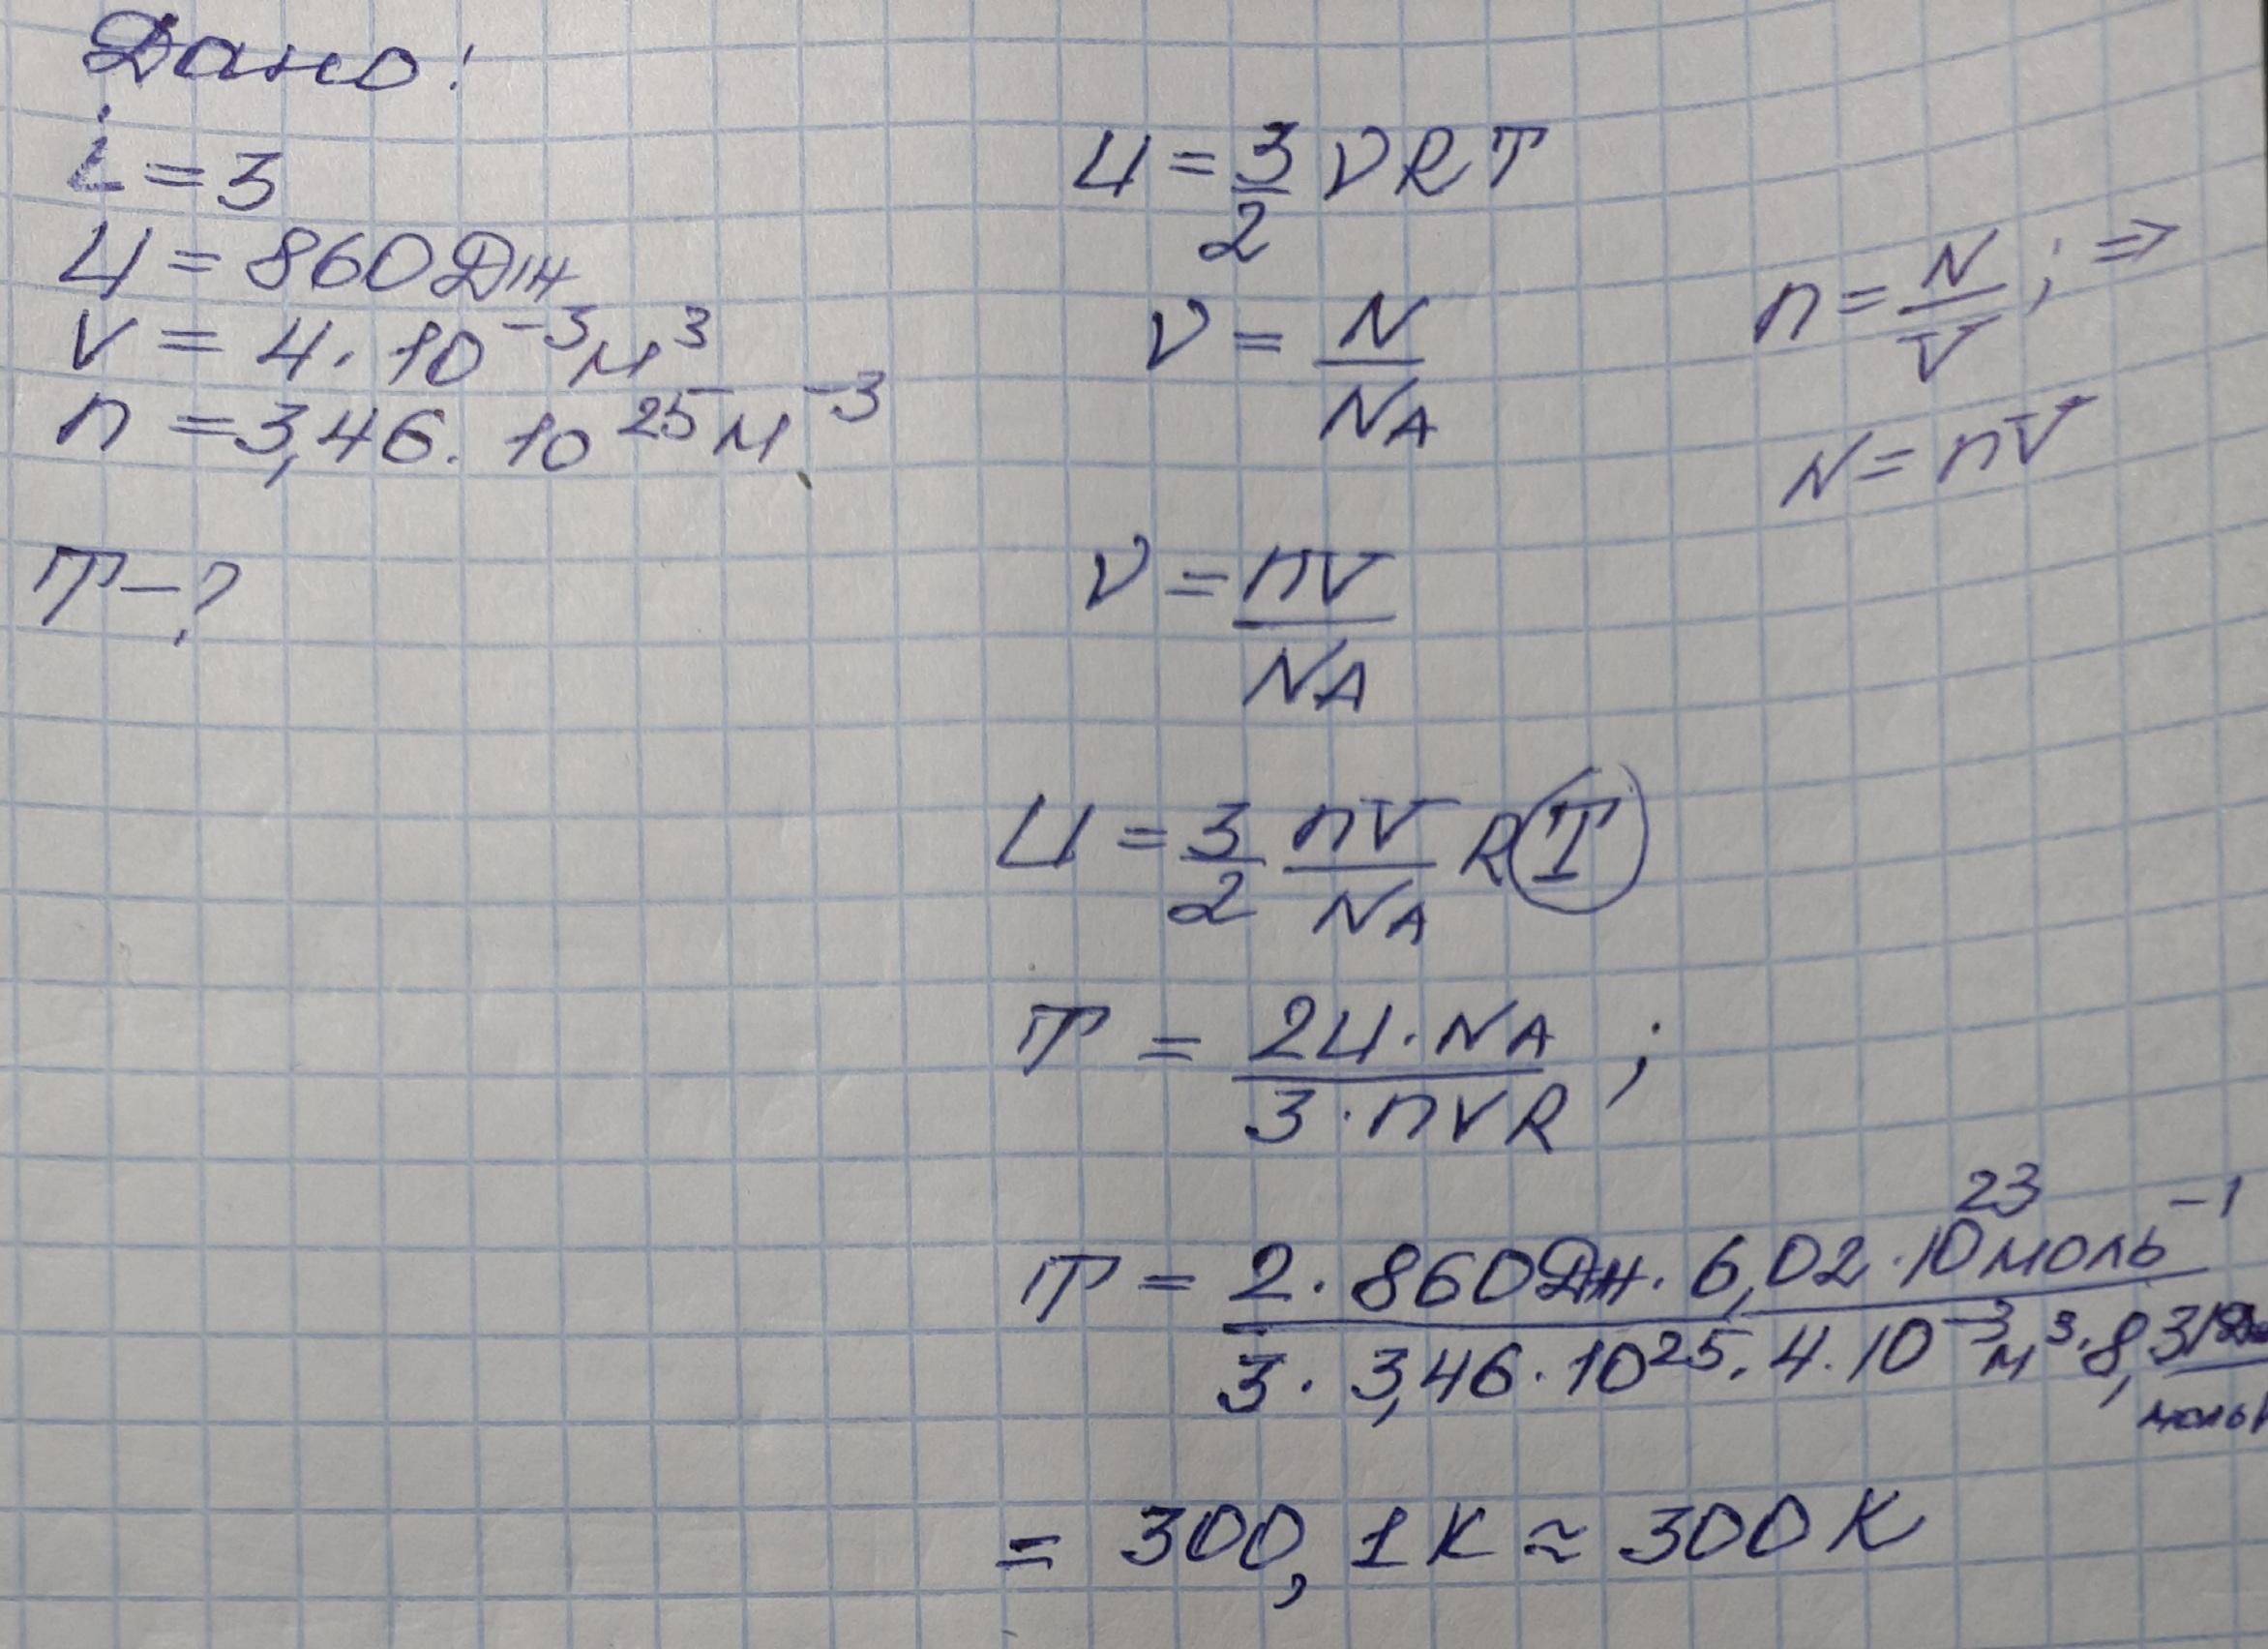 Дано:
i = 3
U = 860 Дж
V = 4 · 10⁻³ м³
n = 3,46 · 10²⁵ м⁻³
T - ?
U = 3/2 ν R T
ν = N/NA
n = N/V ; ⇒
N = nV
ν = nV/NA
U = 3/2 nV/NA R T
T = 2U · NA / 3 · nVR ;
T = 2 · 860 Дж · 6,02 · 10²³ моль⁻¹ / 3 · 3,46 · 10²⁵ · 4 · 10⁻³ м³ · 8,31 Дж/моль
= 300,1 К ≈ 300 К